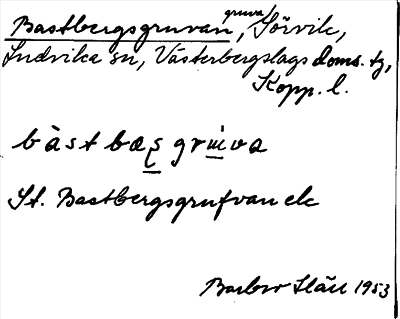 Bastbergsgruvan, gruva, Sörvik,
Ludvika sn, Västerbergslags doms. tg,
Kopp. l.
bàstbæʂgrɯva
St. Bastbergsgrufvan etc
Barbro 1953